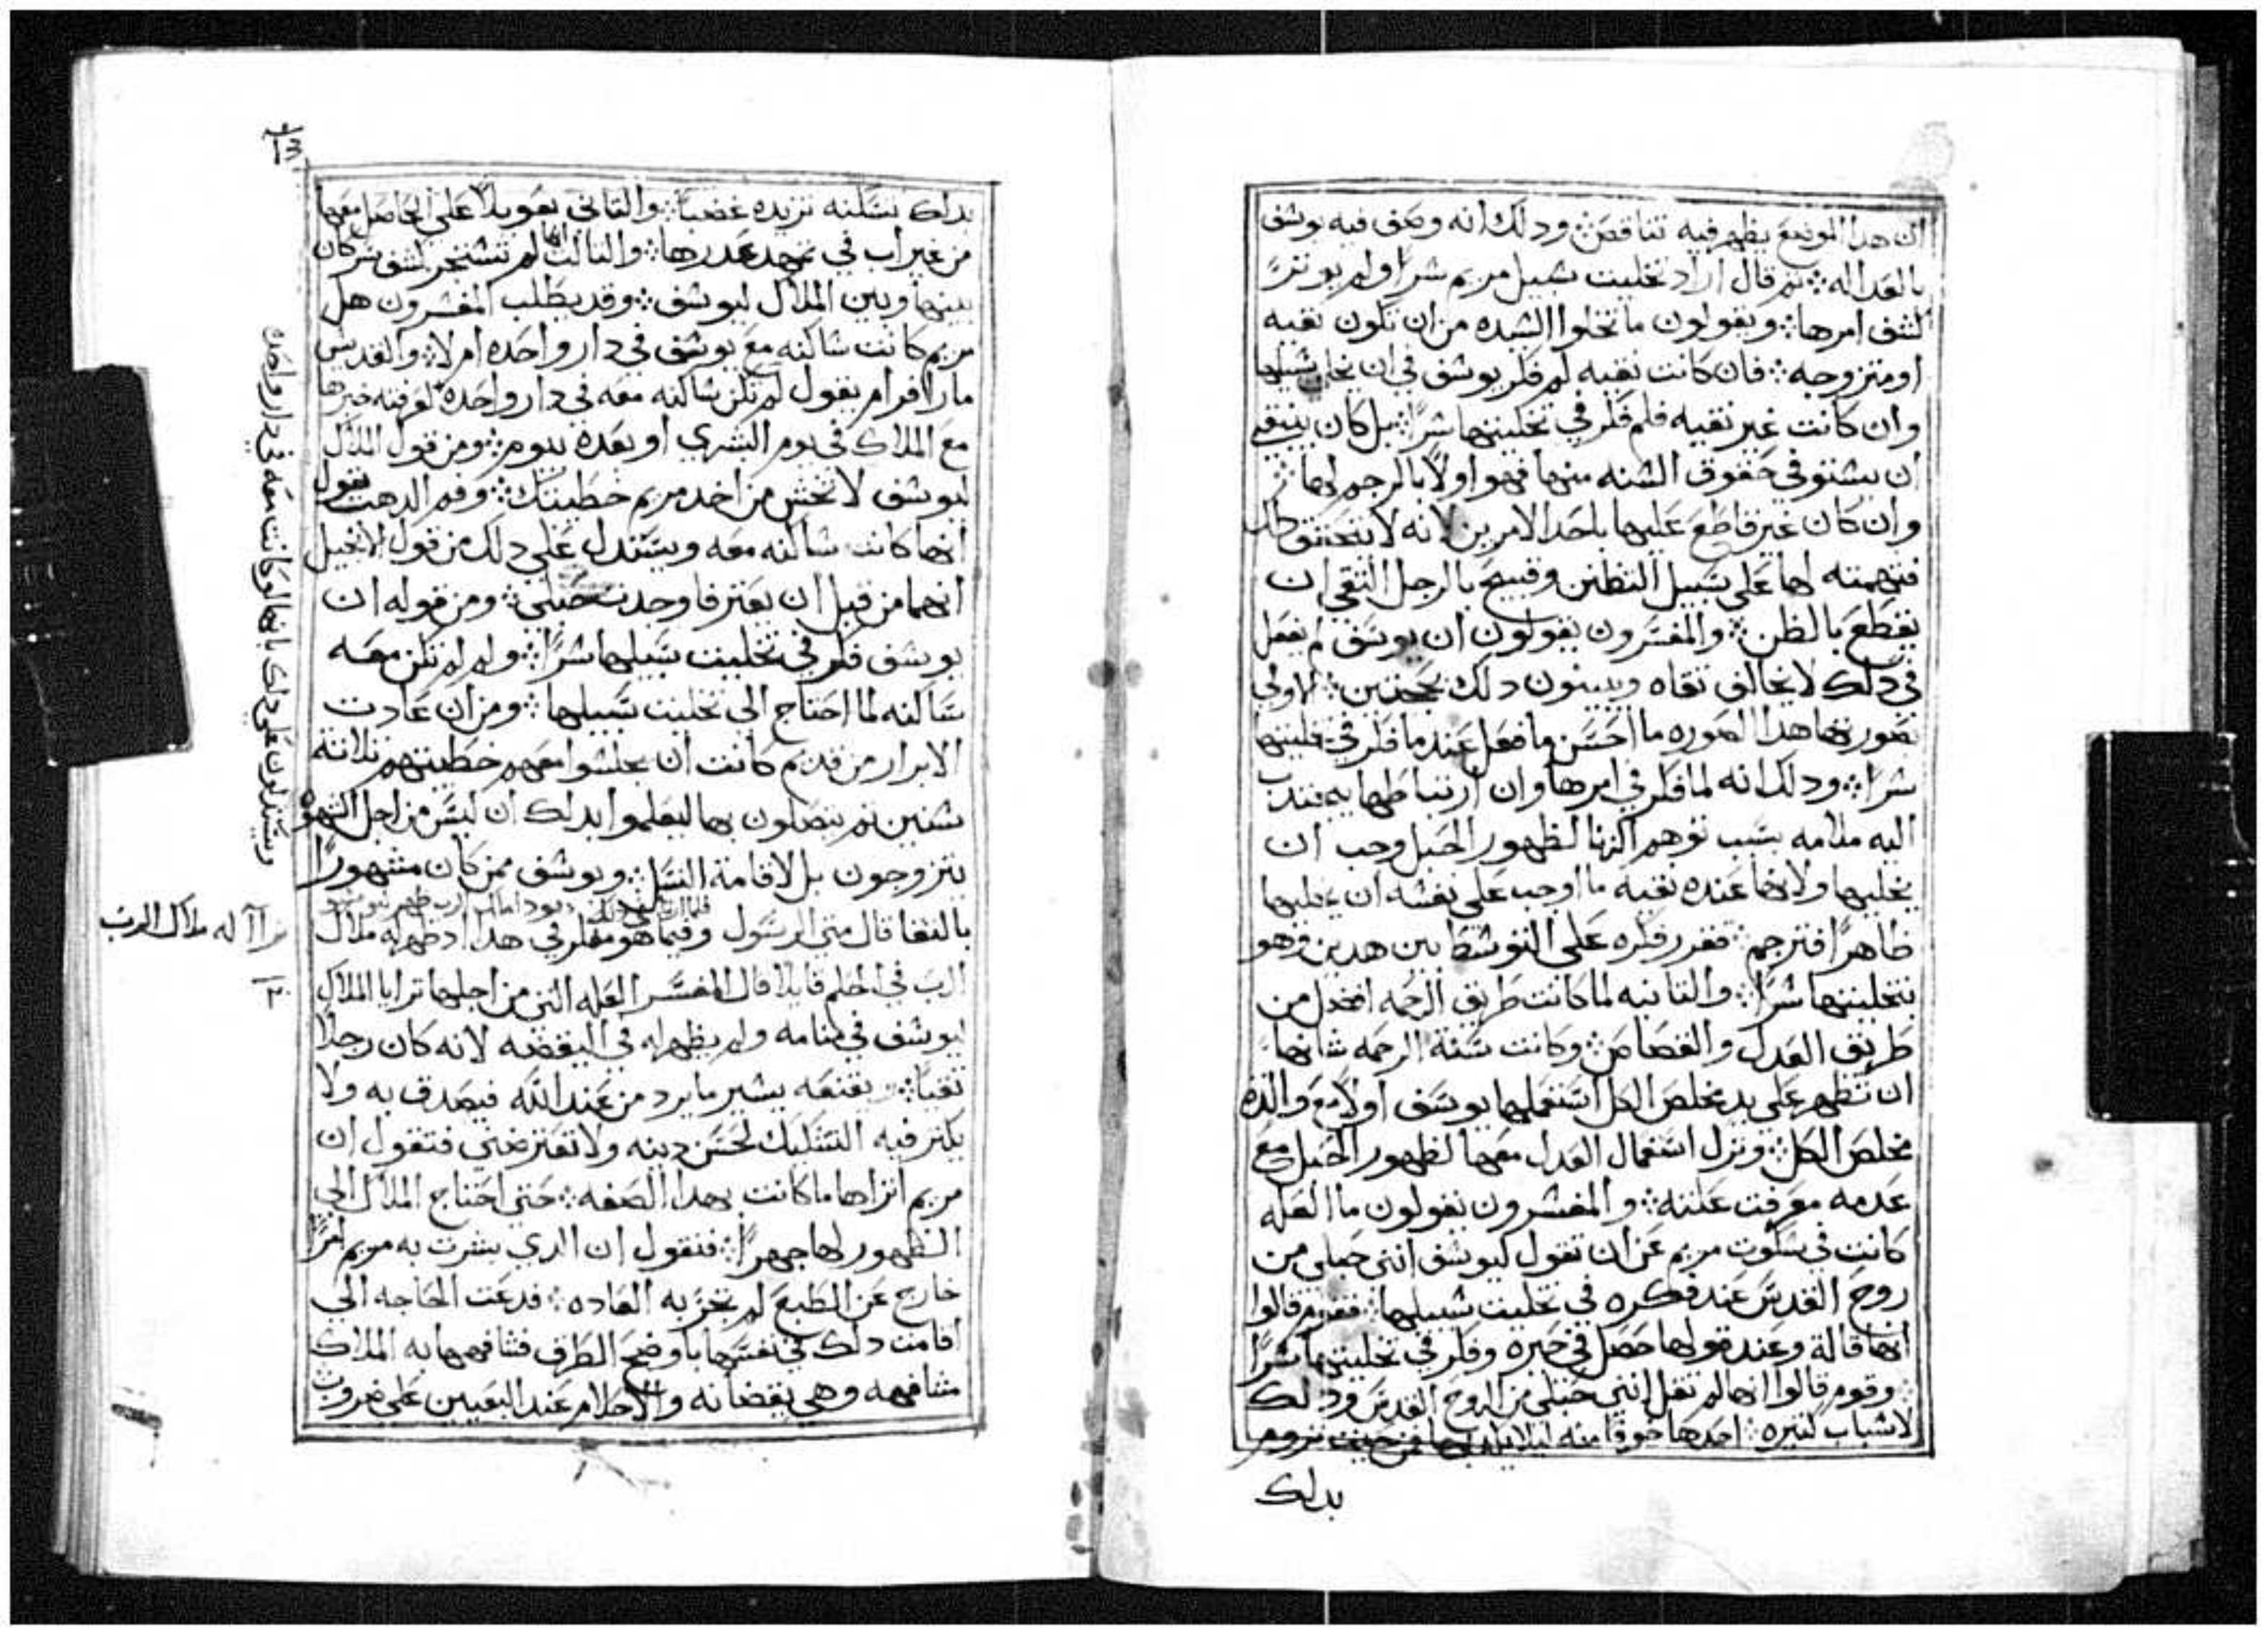 ان هدا الموضع يظهر فيه تناقص ودلك انه وصف فيه يوسف
بالعداله ثم قال اراد تخليت سبيل مريم سرًا ولم يوثر
كشف امرها ويقولون ما تخلوا السيده من ان تكون نقيه
او متزوجه فان كانت نقيه لم فكر يوسف في ان يخلي سبيلها
وان كانت غير نقيه فلم فكر في تخليتها سرًا بل كان ينبغي
ان يستوفي حقوق السنه منها فهو اولًا بالرجم لها
وان كان غير قاطع عليها باحد الامرين لانه لا يتحقق دلك
فتهمته لها على سبيل التظنن وقبيح بالرجل التقي ان
يقطع بالظن والمفسرون يقولون ان يوسف لم يفعل
في دلك لا يخالف تقاه ويبينون دلك بحجتين الاولي
صورتها هدا الصوره ما احسن ما فعل عندما فكر في تخليتها
سرًا ودلك انه لما فكر في امرها وان ارتباطها به
اليه ملامه بسبب توهم الزنا لظهور الحبل وجب ان
يخليها ولانها عنده نقيه ما اوجب على نفسه ان يخليها
ظاهرًا فترجم فقرر فكره على التوسط بين هدين وهو
تخليتها سرًا والثانيه لما كانت طريق الرحمه افضل من
طريق العدل والقصاص وكانت سنة الرحمه شانها
ان تظهر على يد مخلص الكل استعملها يوسف اولًا مع والدة
مخلص الكل وترك استعمال العدل معها لظهور الحبل مع
عدمه معرفت علته والمفسرون يقولون ما العله
كانت في سكوت مريم عن ان تقول ليوسف انني حبلى من
روح القدس عند فكره في تخليت سبيلها فقوم قالوا
انها قالة وعند قولها حصل في حيرة وفكر في تخليتها سرًا
وقوم قالوا انها لم تقل انني حبلى من الروح القدس ودلك
لاسباب كثيره احدها خوفا منه ليلا من حيث تروم
بدلك
بدلك تسكنه تزيده غضبًا والثاني تعويلًا على الحاصل معها
من غير اب في تمهيد عدرها والثالث انها لم تستجر كشف سر كان
بينها وبين الملاك ليوسف وقد يطلب المفسرون هل
مريم كانت ساكنه مع يوسف في دار واحده ام لا والقديس
مار افرام يقول لم تكن ساكنه معه في دار واحده لعرفته خبرها
مع الملاك في يوم البشري او بعده بيوم ومن قول الملاك
ليوسف لا تخش من اخد مريم خطيبتك وفم الدهب يقول
انها كانت ساكنه معه ويستدل على دلك من قول الانجيل
انهما من قبل ان يعترفا وجدت حبلى ومن قوله ان
يوسف فكر في تخليت سبيلها سرًا ولو لم تكن معه
ساكنه لما احتاج الى تخليت سبيلها ومن ان عادت
الابرار من قديم كانت ان يجلسوا معهم خطيبتهم ثلاثة
سنين ثم يتصلون بها ليعلموا بدلك ان ليس من اجل الشهوة
يتزوجون بل لاقامة النسل ويوسف ممن كان مشهورًا
بالتقا قال متى الرسول وفيما هو مفكر في هدا اد ظهر له ملاك
الرب في الحلم قايلًا قال المفسر العله التي من اجلها ترايا الملاك
ليوسف في منامه ولم يظهر له في اليقضه لانه كان رجلًا
تقيًا يقنعه يسير ما يرد من عند الله فيصدق به ولا
يكثر فيه التشكيك لحسن دينه ولا تعترضني فتقول ان
مريم اتراها ما كانت بهدا الصفه حتى احتاج الملاك الى
الظهور لها جهرًا فنقول ان الدي بشرت به مريم امرًا
خارج عن الطبع لم تجر به العاده فدعت الحاجه الى
اقامت دلك في نفسها باوضح الطرق فشافهها به الملاك
مشافهه وهي يقضانه والاحلام عند اليقين على ضروب
ويستدلون على دلك بانها لو كانت معه في دار واحده
له ملاك الرب